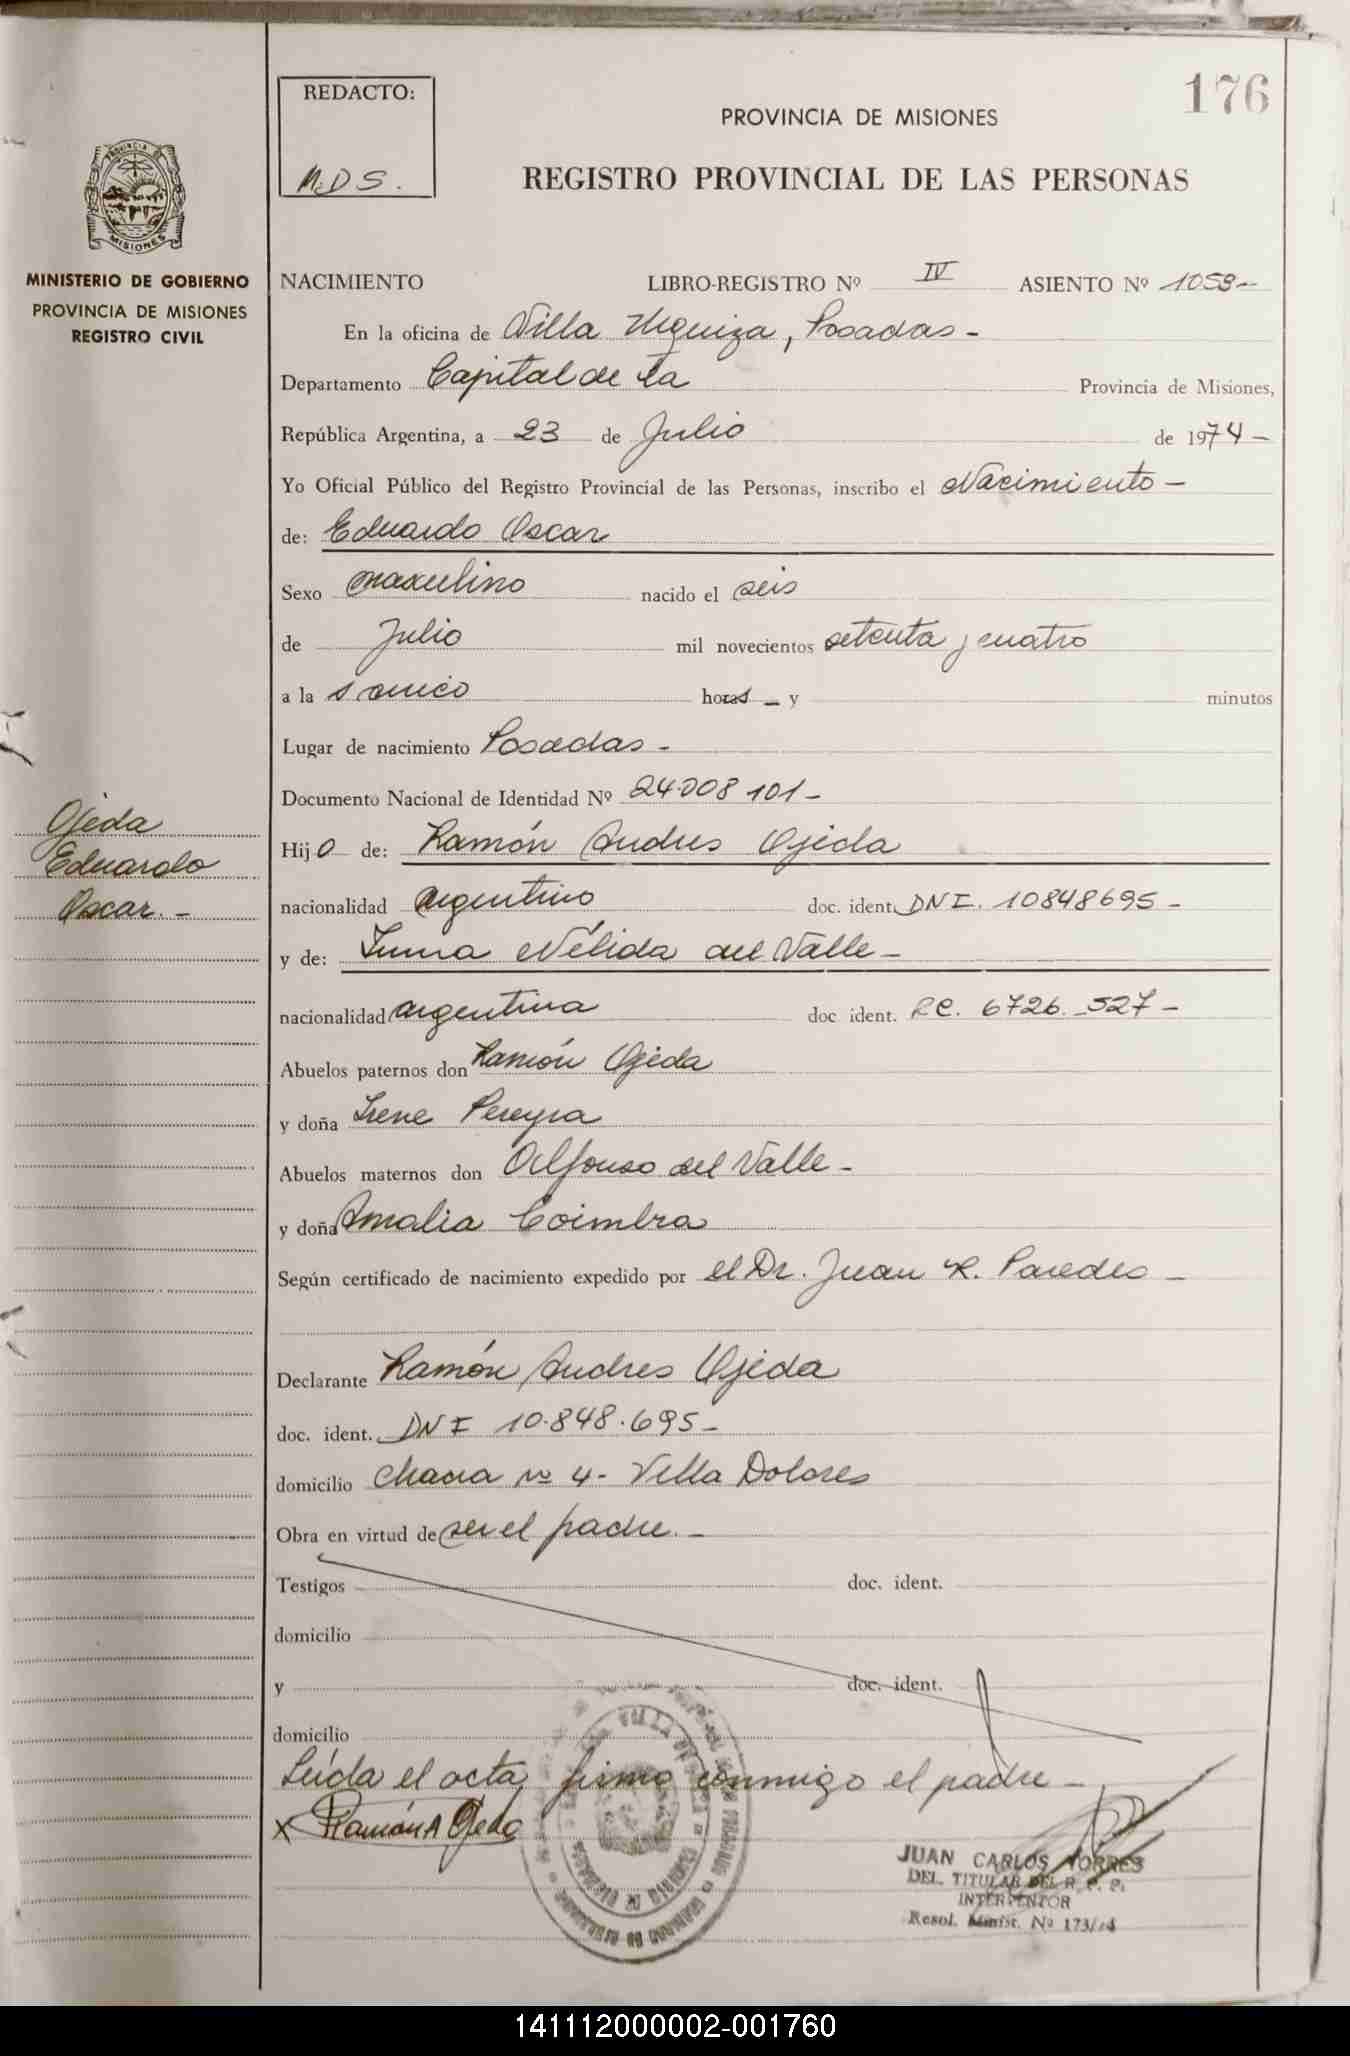 176
REDACTO:
M.D S.
PROVINCIA DE MISIONES
REGISTRO PROVINCIAL DE LAS PERSONAS
PROVINCIA DE
MISIONES
MINISTERIO DE GOBIERNO
PROVINCIA DE MISIONES
REGISTRO CIVIL
NACIMIENTO LIBRO-REGISTRO Nº IV ASIENTO Nº 1059-
En la oficina de Villa Urquiza, Posadas -
Departamento Capital de la Provincia de Misiones,
República Argentina, a 23 de Julio de 1974 -
Yo Oficial Público del Registro Provincial de las Personas, inscribo el Nacimiento -
de: Eduardo Oscar
Sexo masculino nacido el seis
de Julio mil novecientos setenta y cuatro
a la s cinco horas - y minutos
Lugar de nacimiento Posadas -
Documento Nacional de Identidad Nº 24.008 101 -
Hijo de: Ramón Andres Ojeda
Ojeda
Eduardo
Oscar. -
nacionalidad argentino doc. ident. DNI. 10848695 -
y de: Irma Nélida del Valle -
nacionalidad argentina doc ident. RC. 6726. 527 -
Abuelos paternos don Ramón Ojeda
y doña Irene Pereyra
Abuelos maternos don Alfonso del Valle -
y doña Amalia Coimbra
Según certificado de nacimiento expedido por el Dr. Juan R. Paredes -
Declarante Ramón Andres Ojeda
doc. ident. DNI 10.848.695 -
domicilio Chacra nº 4 - Villa Dolores
Obra en virtud de ser el padre. -
Testigos doc. ident.
domicilio
y doc. ident.
domicilio
Leída el acta, firma conmigo el padre -
x Ramón A Ojeda
JUAN CARLOS TORRES
DEL. TITULAR DEL R. P. P.
INTERVENTOR
Resol. Minist. Nº 173/74
141112000002-001760